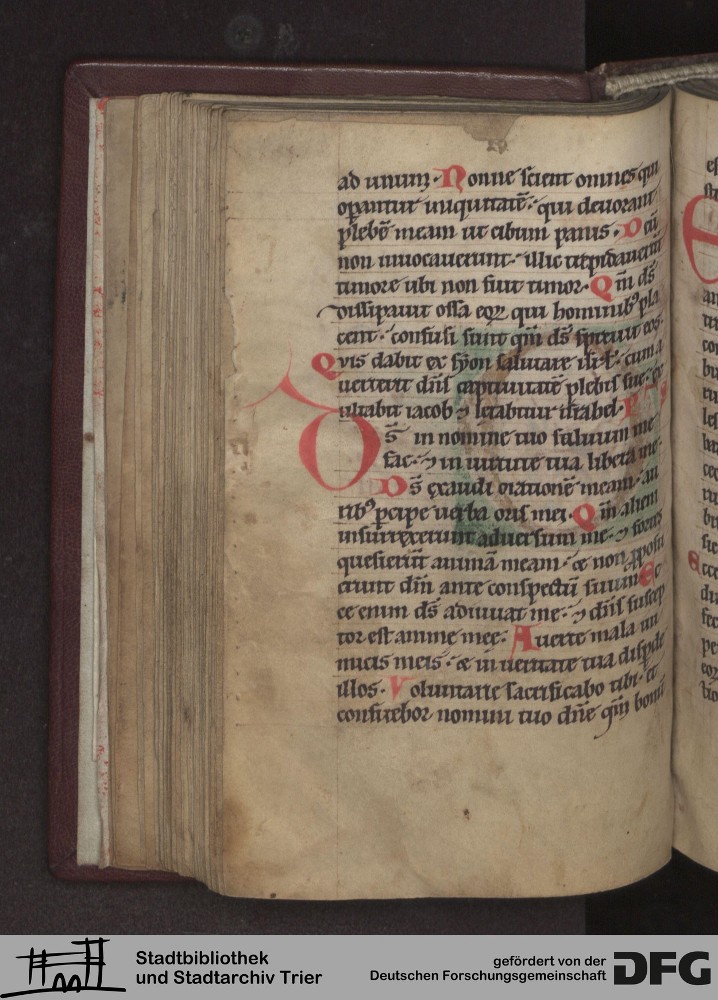 ad unum. Nonne scient omnes qui
opantur iniquitatē. qui deuorant
plebē meam ut cibum panis. Dēū
non inuocauerunt. illic trepidauerūt
timore ubi non fuit timor. Qm̄ ds̄
dissipauit ossa eoꝝ qui hominibꝰ pla
cent. confusi sunt qm̄ ds̄ spreuit eos.
Quis dabit ex syon salutare isr̄l. cum a
uerterit dn̄s captiuitatē plebis sue. ex
ultabit iacob ⁊ letabitur israhel.
Ds̄ in nomine tuo saluum me
fac. ⁊ in uirtute tua libera me.
Ds̄ exaudi orationē meam. au
ribꝰ pcipe uerba oris mei. Qm̄ alieni
insurrexerunt aduersum me. ⁊ fortes
quesierūt animā meam. ⁊ non ꝓposu
erunt dm̄ ante conspectū suum. Ec
ce enim ds̄ adiuuat me. ⁊ dn̄s suscep
tor est anime meę. Auerte mala ini
micis meis. ⁊ in ueritate tua disperde
illos. Voluntarie sacrificabo tibi. et
confitebor nomini tuo dn̄e qm̄ bonū
Stadtbibliothek
und Stadtarchiv Trier
gefördert von der
Deutschen Forschungsgemeinschaft
DFG